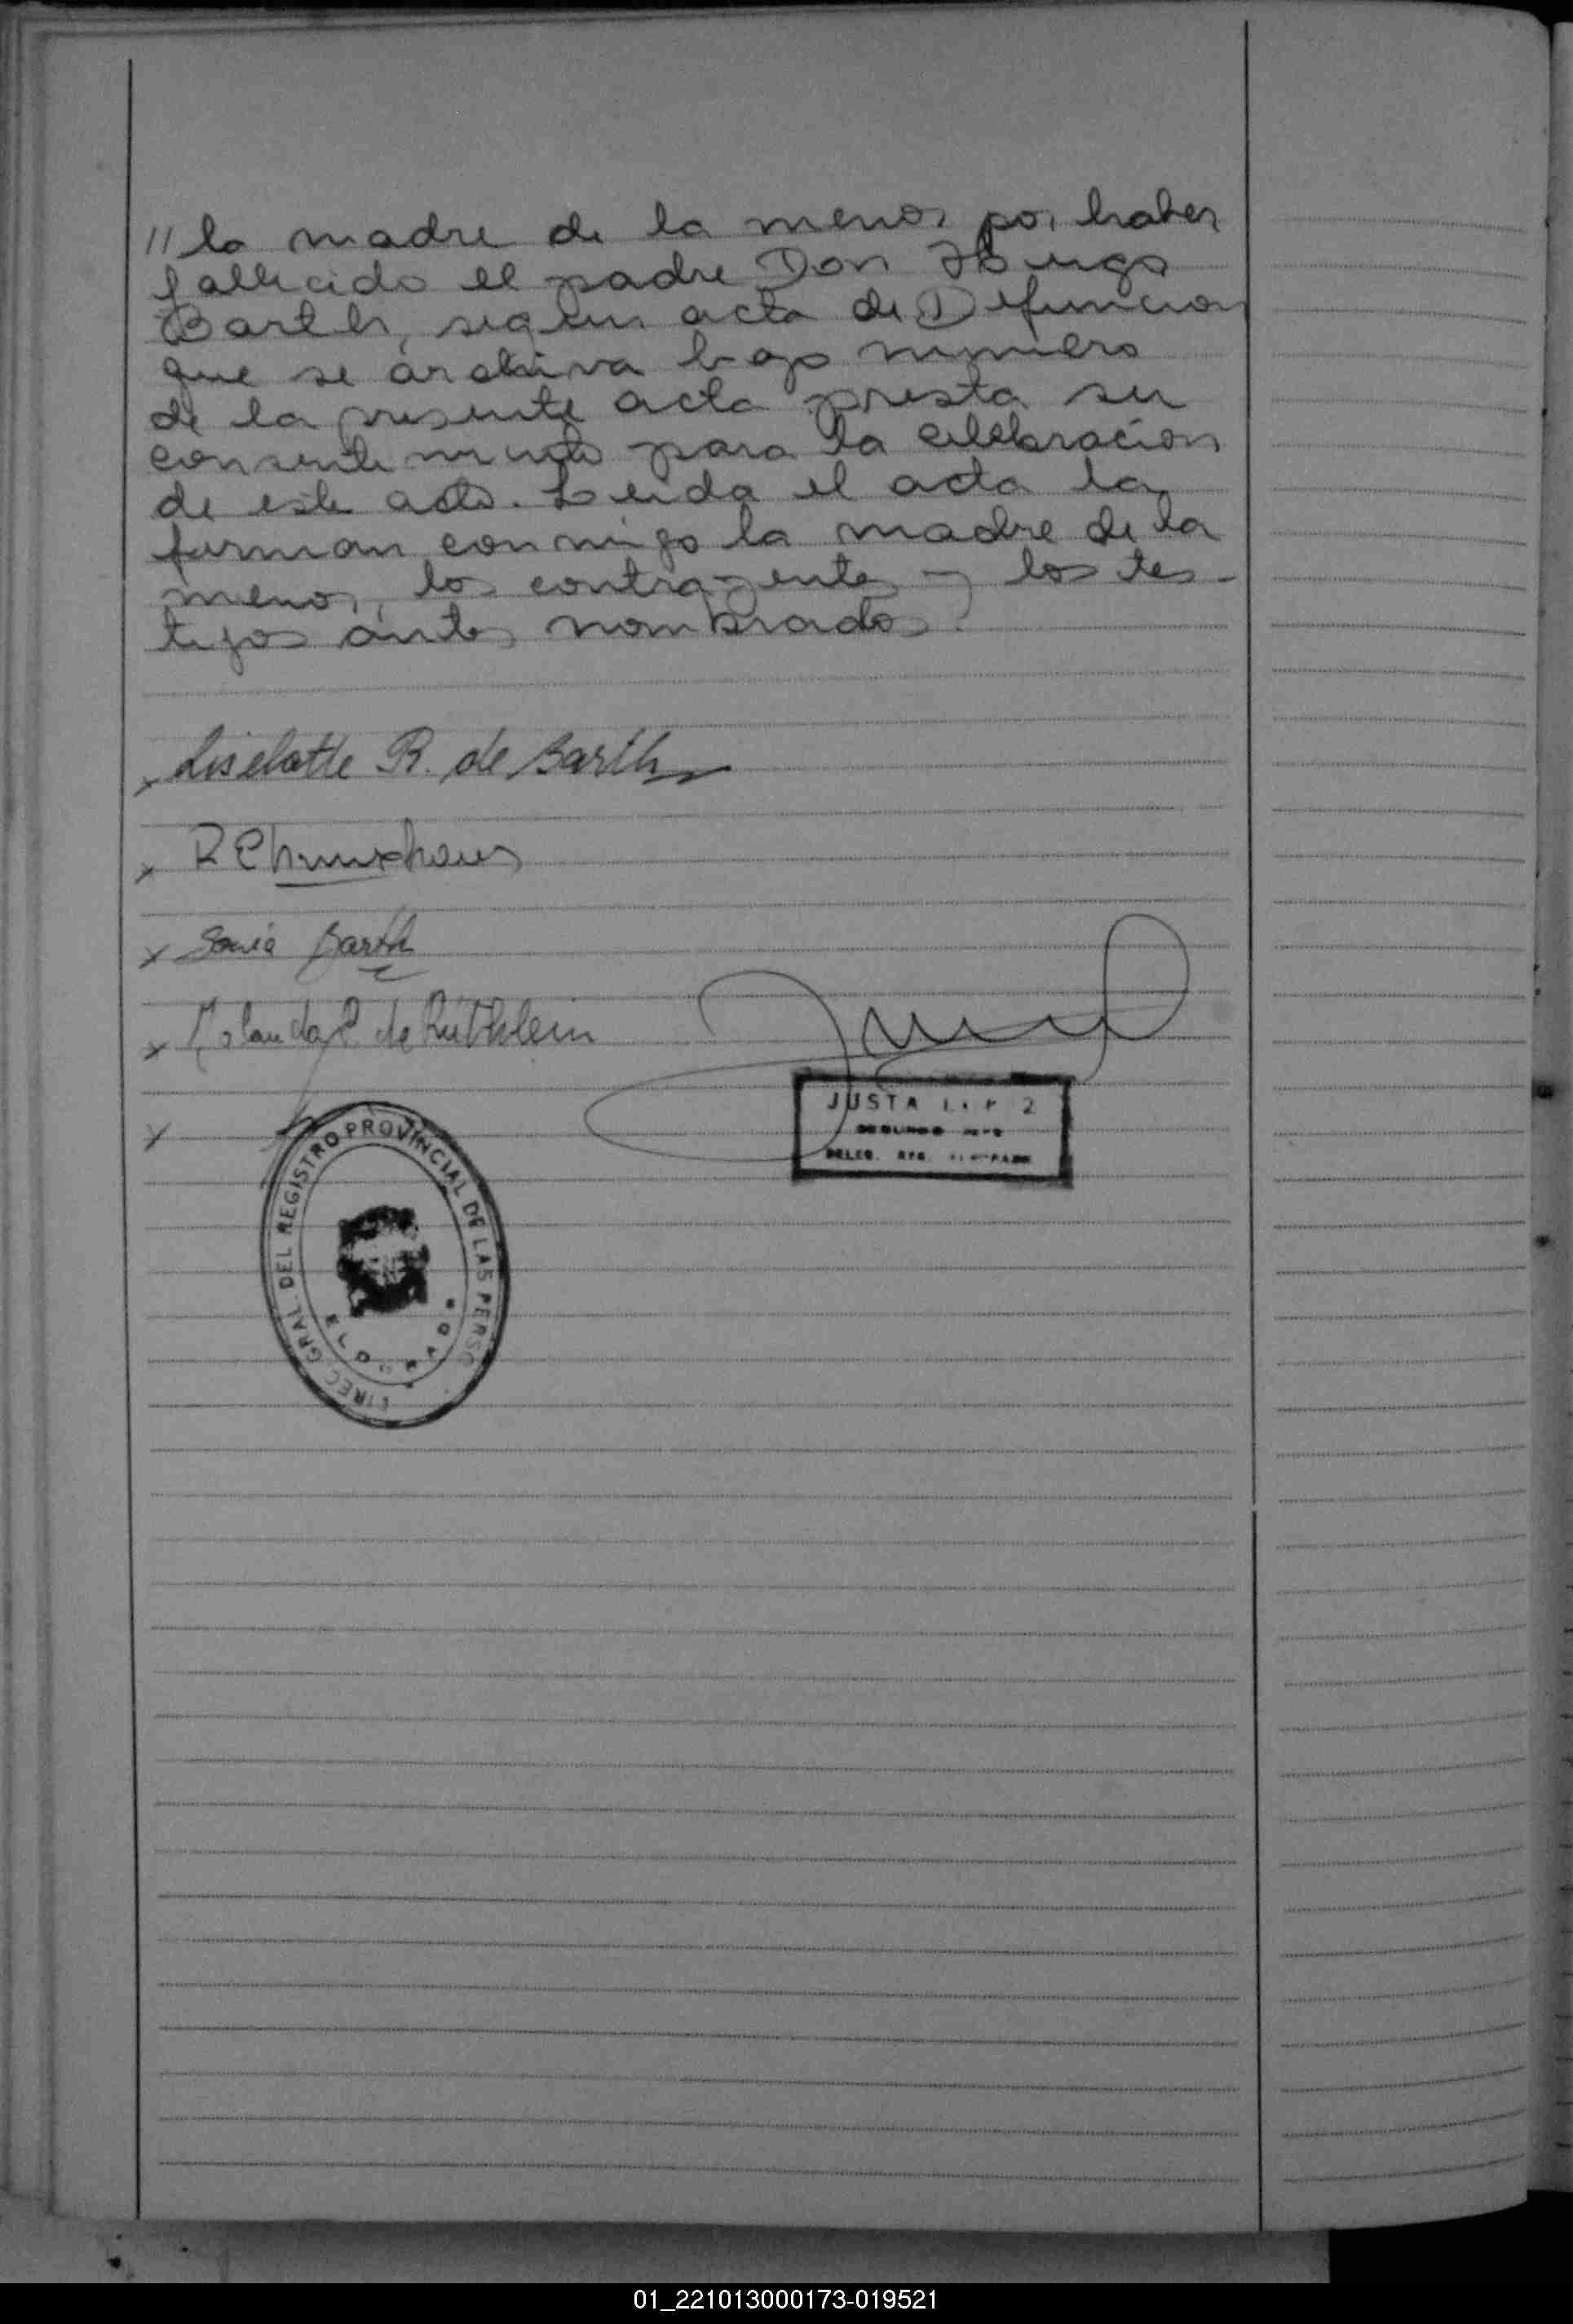 // la madre de la menor por haber
fallecido el padre Don Hugo
Barth, según acta de Defuncion
que se archiva bajo numero
de la presente acta presta su
consentimiento para la celebracion
de este acto. Leida el acta la
firman conmigo la madre de la
menor, los contrayentes y los tes-
tigos antes nombrados.
x Liselotte R. de Barth
x
x Sonia Barth
x Yolanda R. de Rüthlein
x
JUSTA
SEGUNDO JEFE
DELEG.
DIREC. GRAL. DEL REGISTRO PROVINCIAL DE LAS PERSO
ELDORADO
01_221013000173-019521